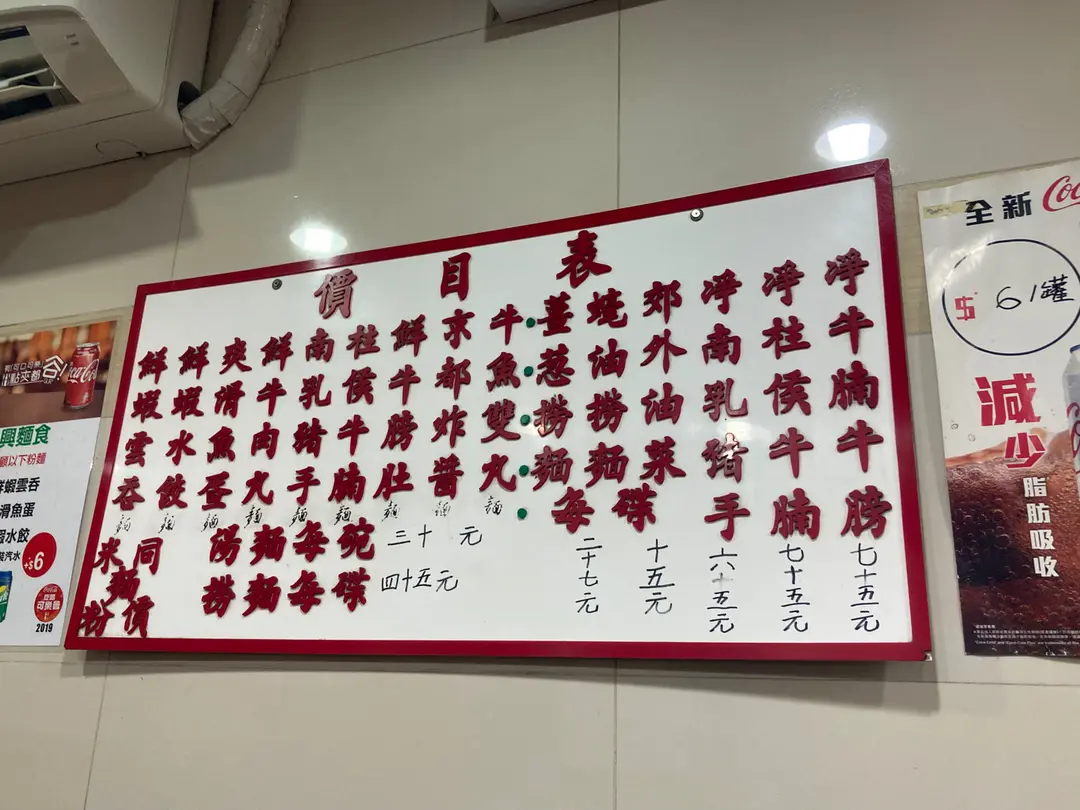 價目表
淨牛腩牛膀 七十五元
淨柱侯牛腩 七十五元
淨南乳豬手 六十五元
郊外油菜 十五元
蠔油撈麵
薑葱撈麵
每碟 二十七元
牛魚雙丸麵
京都炸醬麵
鮮牛膀肚麵
柱侯牛腩麵
南乳豬手麵
鮮牛肉丸麵
爽滑魚蛋麵
鮮蝦水餃麵
鮮蝦雲吞麵
湯麵每碗 三十元
撈麵每碟 四十五元
米麵粉同價
Coca-Cola
興麵食
顧以下粉麵
鮮蝦雲吞
滑魚蛋
蝦水餃
裝汽水
+$6
2019
全新 Coc
$6/罐
減少
脂肪吸收